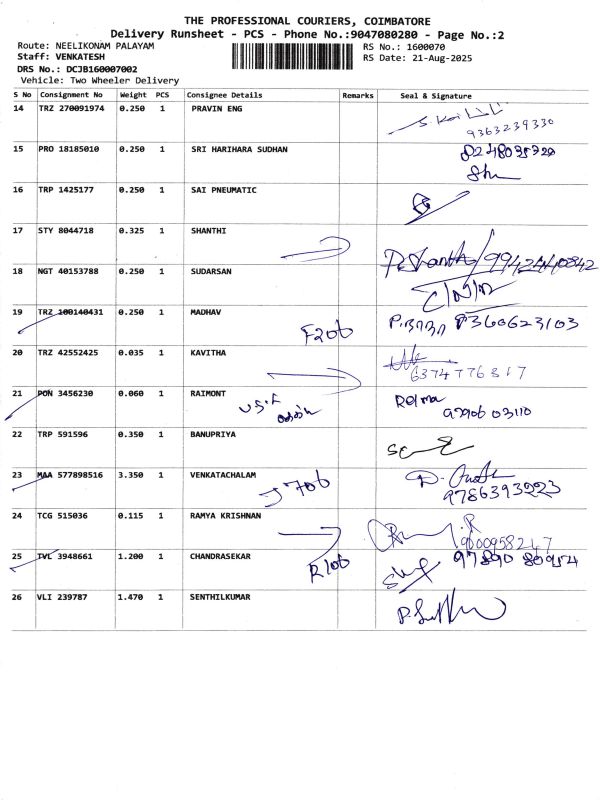 THE PROFESSIONAL COURIERS, COIMBATORE
Delivery Runsheet - PCS - Phone No.:9047080280 - Page No.:2
Route: NEELIKONAM PALAYAM RS No.: 1600070
Staff: VENKATESH RS Date: 21-Aug-2025
DRS No.: DCJB160007002
Vehicle: Two Wheeler Delivery
S No Consignment No Weight PCS Consignee Details Remarks Seal & Signature
14 TRZ 270091974 0.250 1 PRAVIN ENG
9363239330
15 PRO 18185010 0.250 1 SRI HARIHARA SUDHAN
16 TRP 1425177 0.250 1 SAI PNEUMATIC
17 STY 8044718 0.325 1 SHANTHI
18 NGT 40153788 0.250 1 SUDARSAN
19 TRZ 100140431 0.250 1 MADHAV F206
20 TRZ 42552425 0.035 1 KAVITHA
6374776317
21 PON 3456230 0.060 1 RAIMONT
97906 03110
22 TRP 591596 0.350 1 BANUPRIYA
23 MAA 577898516 3.350 1 VENKATACHALAM J706
9786393223
24 TCG 515036 0.115 1 RAMYA KRISHNAN
9600958247
25 TVL 3948661 1.200 1 CHANDRASEKAR R106 97890 80954
26 VLI 239787 1.470 1 SENTHILKUMAR